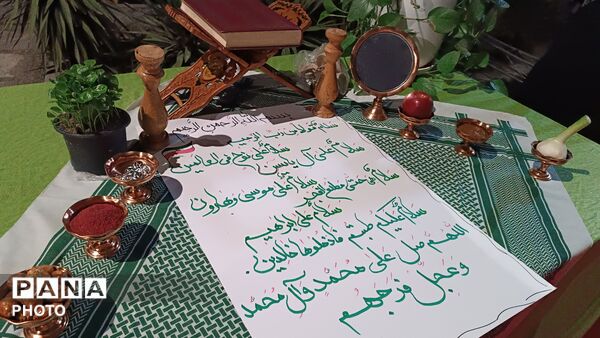 بسم الله الرحمن الرحیم
سلام قولا من رب الرحیم
سلام علی نوح فی العالمین
سلام علی آل یاسین
سلام علی موسی و هارون
سلام هی حتی مطلع الفجر
سلام علی ابراهیم
سلام علیکم طبتم فادخلوها خالدین
اللهم صل علی محمد وآل محمد
و عجل فرجهم
PANA
PHOTO